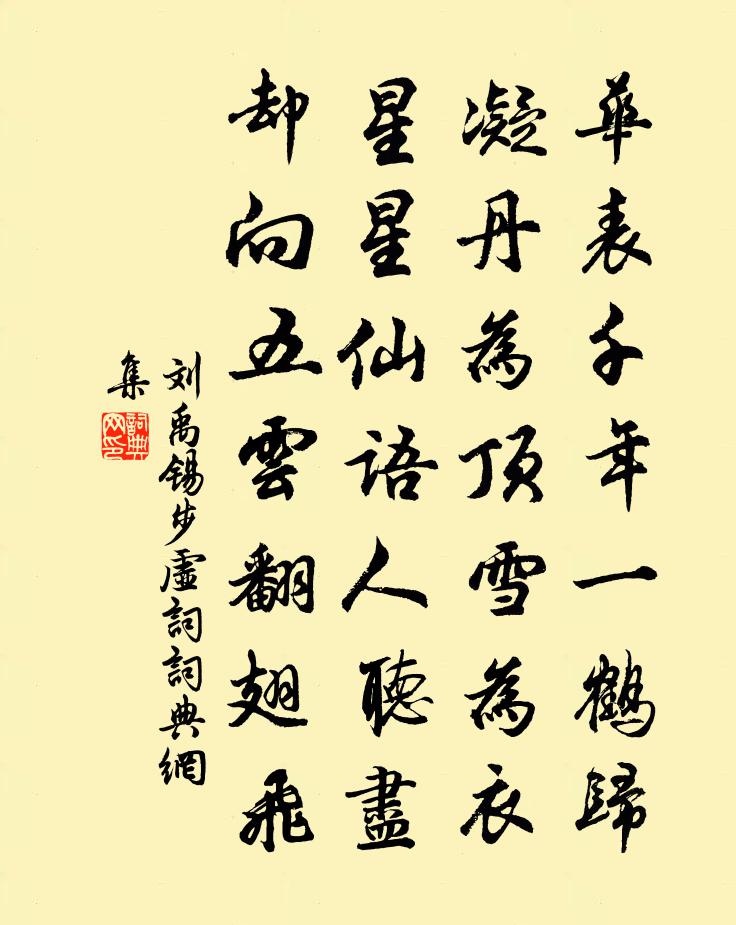 華表千年一鶴歸
凝丹為頂雪為衣
星星仙語人聽盡
却向五雲翻翅飛
刘禹锡步虛詞詞典網
集
詞典
网印